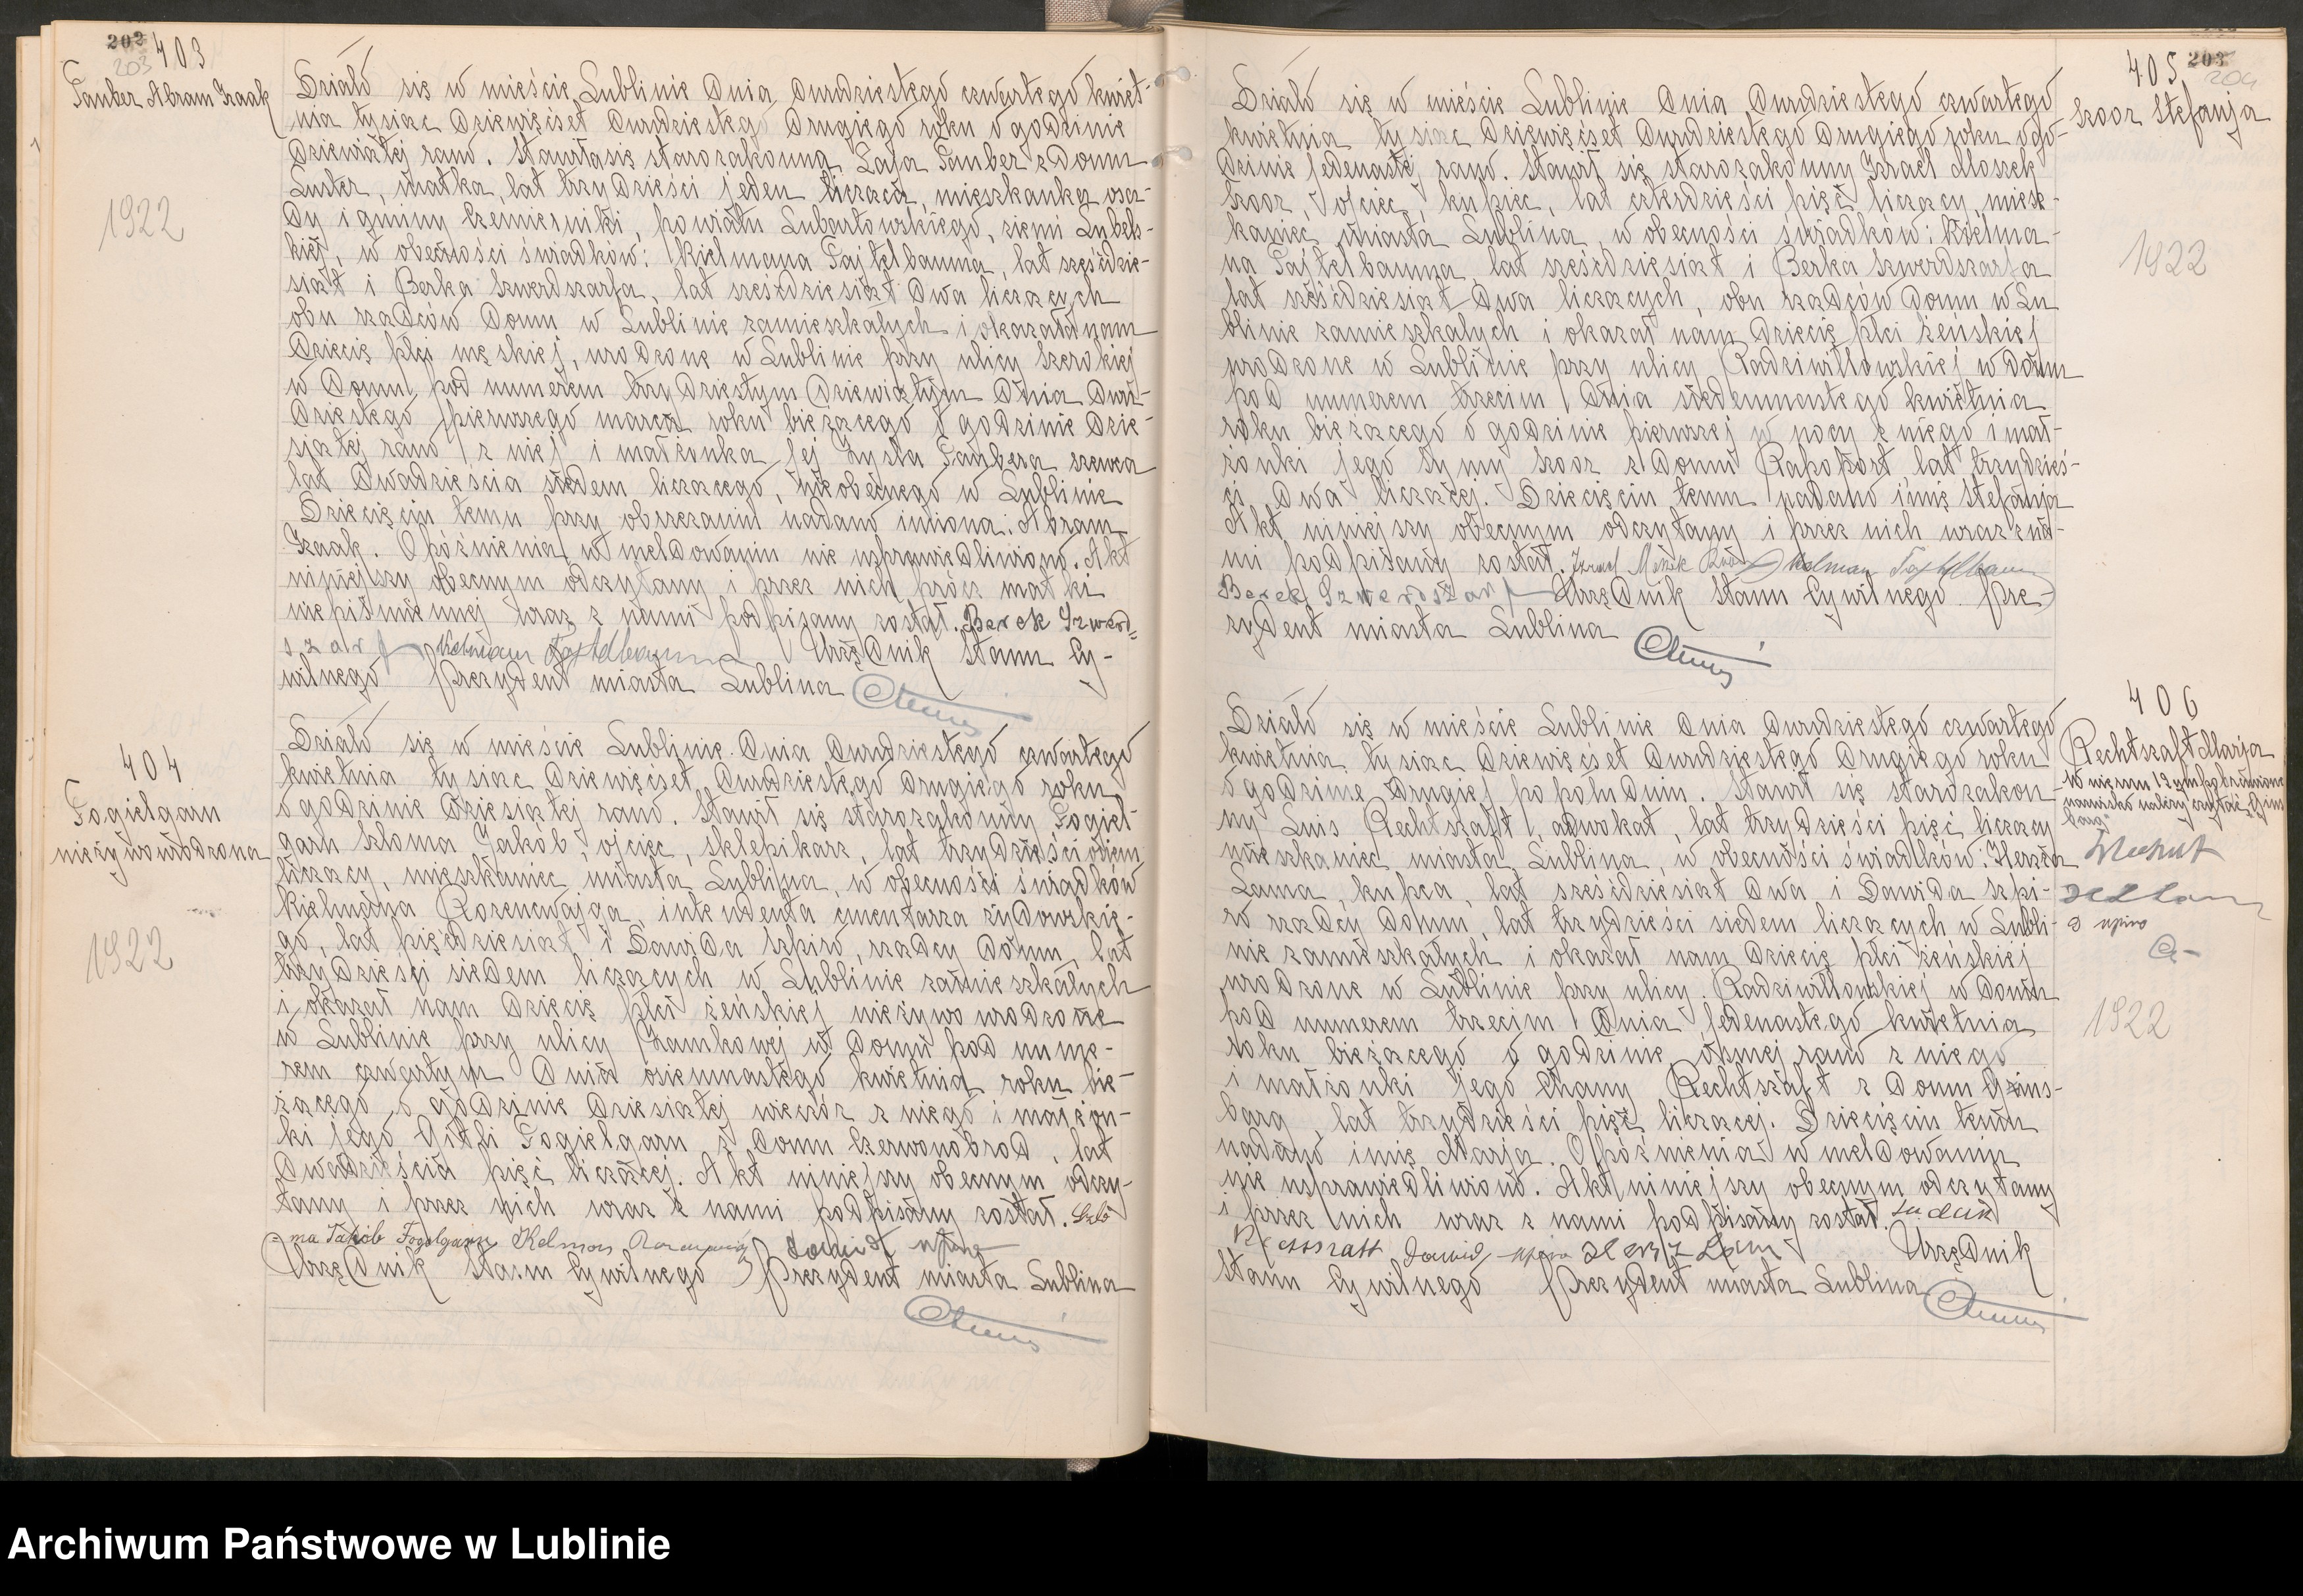 202
203
403
Tauber Abram Izaak
1922
Działo się w mieście Lublinie dnia dwudziestego czwartego kwiet-
nia tysiąc dziewięćset dwudziestego drugiego roku o godzinie
dziewiątej rano. Stawiła się starozakonna Łaja Tauber z domu
Luster, matka, lat trzydzieści jeden licząca, mieszkanka osa-
dy i gminy Czemierniki, powiatu Lubartowskiego, ziemi Lubels-
kiej, w obecności świadków: Kielmana Fajtelbauma, lat sześćdzie-
siąt i Berka Szwerdszarfa, lat sześćdziesiąt dwa liczących
obu rządców domu w Lublinie zamieszkałych i okazała nam
dziecię płci męskiej, urodzone w Lublinie przy ulicy Szerokiej
w domu pod numerem trzydziestym dziewiątym dnia dwu-
dziestego pierwszego marca roku bieżącego o godzinie dzie-
siątej rano z niej i małżonka jej Zysla Taubera szewca
lat dwadzieścia siedem liczącego, nieobecnego w Lublinie
Dziecięciu temu przy obrzezaniu nadano imiona: Abram
Izaak. Opóźnienia w meldowaniu nie usprawiedliwiono. Akt
niniejszy obecnym odczytany i przez nich prócz matki
niepiśmiennej wraz z nami podpisany został. Berek Szwerd-
szarf Kelman Fajtelbaum Urzędnik Stanu Cy-
wilnego Prezydent miasta Lublina
404
Fogielgarn
nieżywo urodzona
1922
Działo się w mieście Lublinie dnia dwudziestego czwartego
kwietnia tysiąc dziewięćset dwudziestego drugiego roku
o godzinie dziesiątej rano. Stawił się starozakonny Fogiel-
garn Szloma Jakób, ojciec, sklepikarz, lat trzydzieści
liczący, mieszkaniec miasta Lublina, w obecności świadków
Kielmana Rozencwajga, intendenta cmentarza żydowskie-
go, lat pięćdziesiąt i Dawida Szpiro, rządcy domu, lat
trzydzieści siedem liczących w Lublinie zamieszkałych
i okazał nam dziecię płci żeńskiej nieżywo urodzone
w Lublinie przy ulicy Zamkowej w domu pod nume-
rem czwartym dnia osiemnastego kwietnia roku bie-
żącego o godzinie dziesiątej wieczór z niego i małżon-
ki jego Gitli Fogielgarn z domu Czerwonobrod, lat
dwadzieścia pięć liczącej. Akt niniejszy obecnym odczy-
tany i przez nich wraz z nami podpisany został. Szlo
ma Jakób Fogelgarn Kelman Rozencwajg Dawid Szpiro
Urzędnik Stanu Cywilnego Prezydent miasta Lublina
405
203
204
Szoor Stefanja
1922
Działo się w mieście Lublinie dnia dwudziestego czwartego
kwietnia tysiąc dziewięćset dwudziestego drugiego roku o go-
dzinie jedenastej rano. Stawił się starozakonny Izrael Moszek
Szoor, ojciec, kupiec, lat czterdzieści pięć liczący, miesz-
kaniec miasta Lublina, w obecności świadków: Kielma-
na Fajtelbauma, lat sześćdziesiąt i Berka Szwerdszarfa
lat sześćdziesiąt dwa liczących, obu rządców domu w Lu
blinie zamieszkałych i okazał nam dziecię płci żeńskiej
urodzone w Lublinie przy ulicy Radziwiłłowskiej w domu
pod numerem trzecim dnia siedemnastego kwietnia
roku bieżącego o godzinie pierwszej w nocy z niego i mał-
żonki jego Symy Szoor z domu Rakoport lat trzydzieś-
ci dwa liczącej. Dziecięciu temu nadano imię Stefanja
Akt niniejszy obecnym odczytany i przez nich wraz z na-
mi podpisany został. Kelman Fajtelbaum
Berek Szwerdszarf Urzędnik Stanu Cywilnego Pre-
zydent miasta Lublina
406
Rechtszaft Marja
W wierszu 13ym poprawione
nazwisko należy czytać „Gins
barg"
1922
Działo się w mieście Lublinie dnia dwudziestego czwartego
kwietnia tysiąc dziewięćset dwudziestego drugiego roku
o godzinie drugiej po południu. Stawił się starozakon-
ny Luis Rechtszaft, adwokat, lat trzydzieści pięć liczący
mieszkaniec miasta Lublina, w obecności świadków: Hersza
Lama, kupca, lat sześćdziesiąt dwa i Dawida Szpi-
ro rządcy domu, lat trzydzieści siedem liczących w Lubli-
nie zamieszkałych i okazał nam dziecię płci żeńskiej
urodzone w Lublinie przy ulicy Radziwiłłowskiej w domu
pod numerem trzecim dnia jedenastego kwietnia
roku bieżącego o godzinie ósmej rano z niego
i małżonki jego Chany Rechtszaft z domu Gins-
barg, lat trzydzieści pięć liczącej. Dziecięciu temu
nadano imię Marja. Opóźnienia w meldowaniu
nie usprawiedliwiono. Akt niniejszy obecnym odczytany
i przez nich wraz z nami podpisany został.
Dawid Urzędnik
Stanu Cywilnego Prezydent miasta Lublina
Archiwum Państwowe w Lublinie